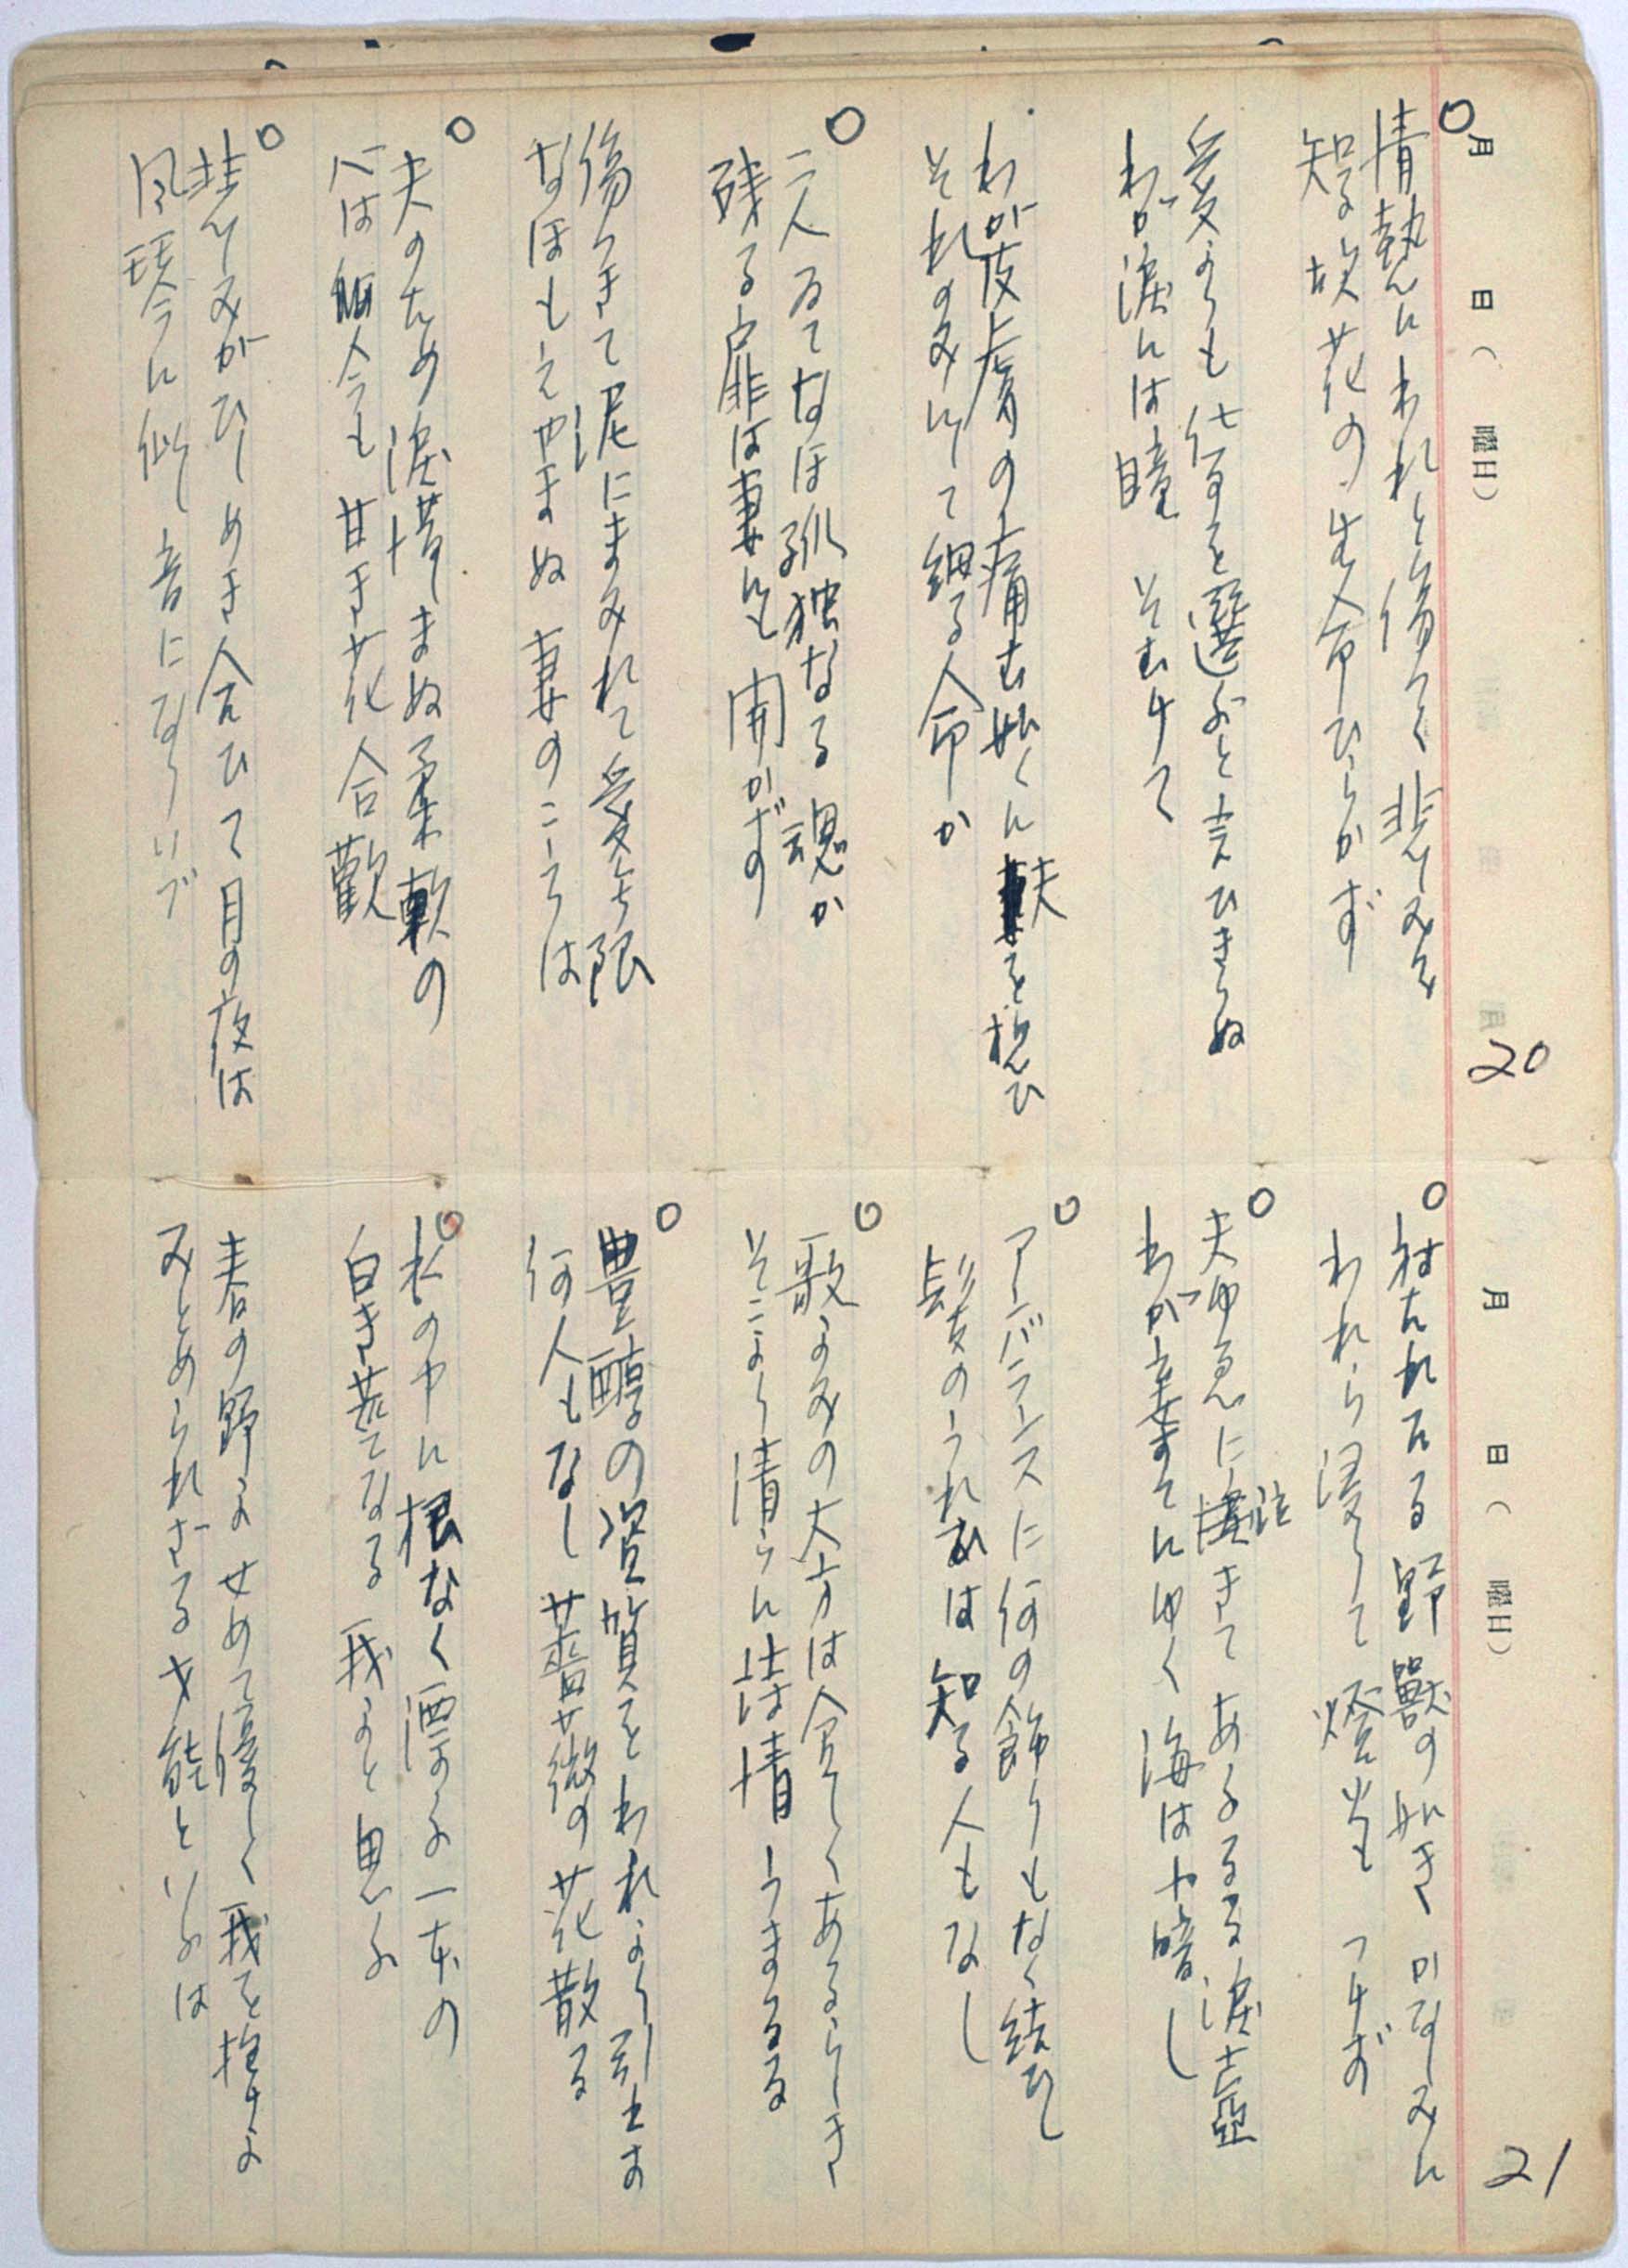 月 日( 曜日)
20
○情熱にわれと傷つく悲しみを
知る故花の生命ひらかず
愛よりも仕事を選ぶと言ひきらぬ
わが涙には瞳そむけて
わが皮膚の痛む如くに夫を想ひ
それのみにて細る命か
○二人ゐてなほ孤独なる魂か
残る扉は妻にも開かず
傷つきて泥にまみれて愛を限
なほもえやまぬ妻のこころは
○夫のため涙惜しまぬ柔軟の
心は今も甘き花合歓
○悲しみがひしめき合ひて月の夜は
風琴に似し音になりいづ
月 日( 曜日)
21
○射たれたる野獣の如きかなしみに
われら浸りて燈もつけず
○夫ゆゑに泣きてあふるる涙壺
わが棄てにゆく海はや暗し
○アンバランスに何の飾りもなく結ひし
髪のうれひは知る人もなし
○歌よみの大方は貧しくあるらしき
そこより清らに詩情うまるる
○豊醇の資質をわれより引出す
何人もなし薔薇の花散る
○私の中に根なく漂ふ一本の
白き花なる我よと思ふ
春の野よせめて優しく我を抱けよ
みとめられざる才能といふは